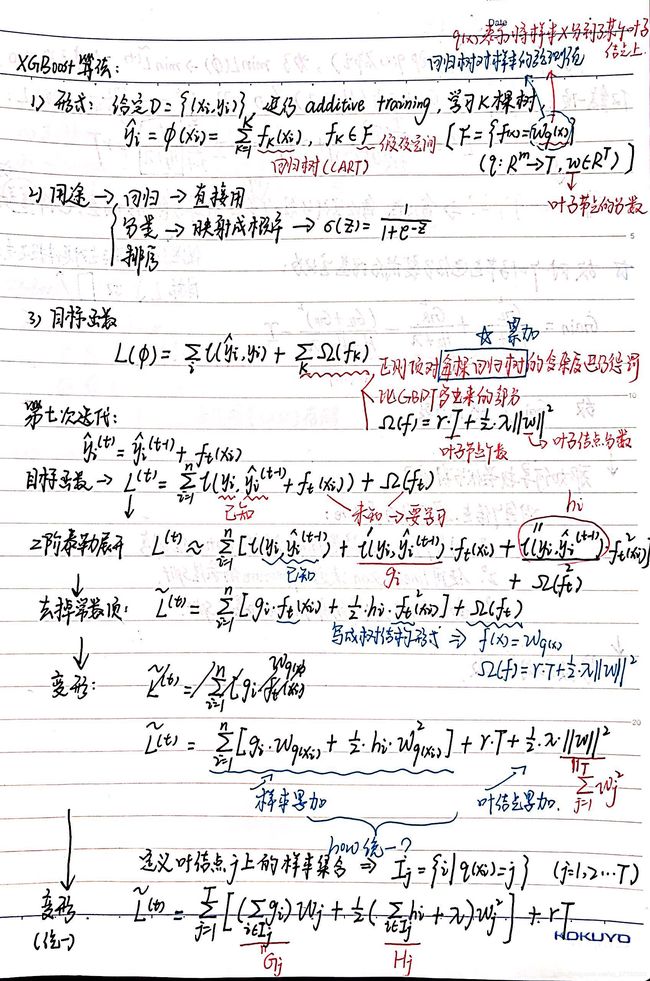 q(x)表示将样本x分到了某个叶子
结点上
回归树对样本的预测值
XGBoost算法:
1) 形式: 给定D={(xi,yi)} 进行 additive training, 学习K棵树
ŷi = φ(xi) = Σ_{k=1}^{K} f_k(xi), f_k∈F 假设空间 [F={f(x)=w_q(x)}
回归树(CART) (q: R^m→T, w∈R^T)]
叶子节点的分数
2) 用途 → 回归 → 直接用
分类 → 映射成概率 → σ(z) = 1/(1+e^{-z})
排序
3) 目标函数
☆ 累加
L(φ) = Σ_i l(ŷi, yi) + Σ_k Ω(f_k) 正则项对每棵回归树的复杂度进行惩罚
比GBDT多出来的部分
第t次迭代: Ω(f) = r·T + ½·λ||w||²
ŷi^(t) = ŷi^(t-1) + f_t(xi) 叶子节点个数 → 叶子结点分数
目标函数 → L^(t) = Σ_{i=1}^{n} l(yi, ŷi^(t-1) + f_t(xi)) + Ω(f_t)
已知 未知 → 要学习 hi
2阶泰勒展开 L^(t) ≈ Σ_{i=1}^{n} [l(yi, ŷi^(t-1)) + l'(yi, ŷi^(t-1))·f_t(xi) + l''(yi, ŷi^(t-1))·f_t²(xi)]
已知 gi + Ω(f_t)
去掉常数项: L̃^(t) = Σ_{i=1}^{n} [gi·f_t(xi) + ½·hi·f_t²(xi)] + Ω(f_t)
写成树结构形式 ⇒ f(x) = w_q(x)
Ω(f) = r·T + ½·λ||w||²
变形: L̃^(t) = Σ_{i=1}^{n} [gi f_t(xi) w_q(x)
L̃^(t) = Σ_{i=1}^{n} [gi·w_q(xi) + ½·hi·w²_q(xi)] + r·T + ½·λ·||w||²
样本累加 叶结点累加. Σ_{j=1}^{T} wj²
how统一?
定义叶结点j上的样本集合 ⇒ Ij = {i|q(xi)=j} (j=1,2...T)
变形 L̃^(t) = Σ_{j=1}^{T} [(Σ_{i∈Ij} gi) wj + ½(Σ_{i∈Ij} hi + λ) wj²] + rT
(统一) Gj Hj
KOKUYO